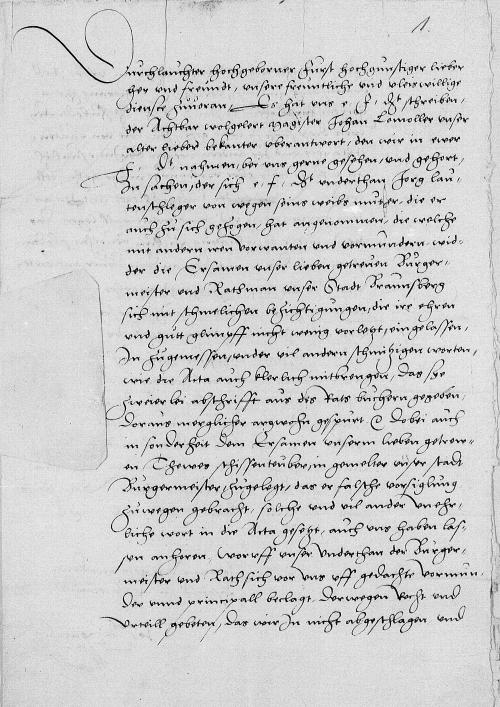 1.
Durchlauchter hochgeborner Furst hochgunstiger lieber
her und freundt, unsere freuntliche und vleiswillige
dienste zuuoran, Es hat uns e f Dt schreiben,
der Achtbar wolgelert Magister Johan Lomoller unser
alter lieber bekanter uberantwort, den wir in ewer
f. Dt nahmen, bei uns gerne gesehen, und gehort,
In sachen, der sich e. f. Dt underthan Jorg lau-
tenschleger von wegen seins weibs muter, die er
auch zu sich gezogen, hat angenommen, die welche
mit andern iren vorwanten und vormundern, wid-
der die Ersamen unser lieben getreuen Burger-
meister und Rathman unser Stadt Braunsberg
sich mit schmelichen bezichtigungen, die ire ehren
und gutt glimpff nicht wenig vorletzt, eingelassen,
In zugemessen, under vil andern schmihigen worten,
wie die Acta auch klerlich mitbrengen, das sye
zweierlei abschrifft aus des Rats buchern gegeben,
doraus merglicher argwohn gespurt & Dobei auch
in sonderheit dem Ersamen unserm lieben getrew-
en Thewes schissenteuber, in gemelter unser stadt
Burgermeister, zugelegt, das er falsche vorsiglung
zuwegen gebracht, solche und vil ander unehr-
liche wort in die Acta gesetzt, auch uns haben las-
sen anhoren, woruff unser underthan der Burger-
meister und Rath sich vor uns uff gedachte vormun-
der unnd principall beclagt. Derwegen Recht und
Urteill gebeten, das wir In nicht abgeschlagen und